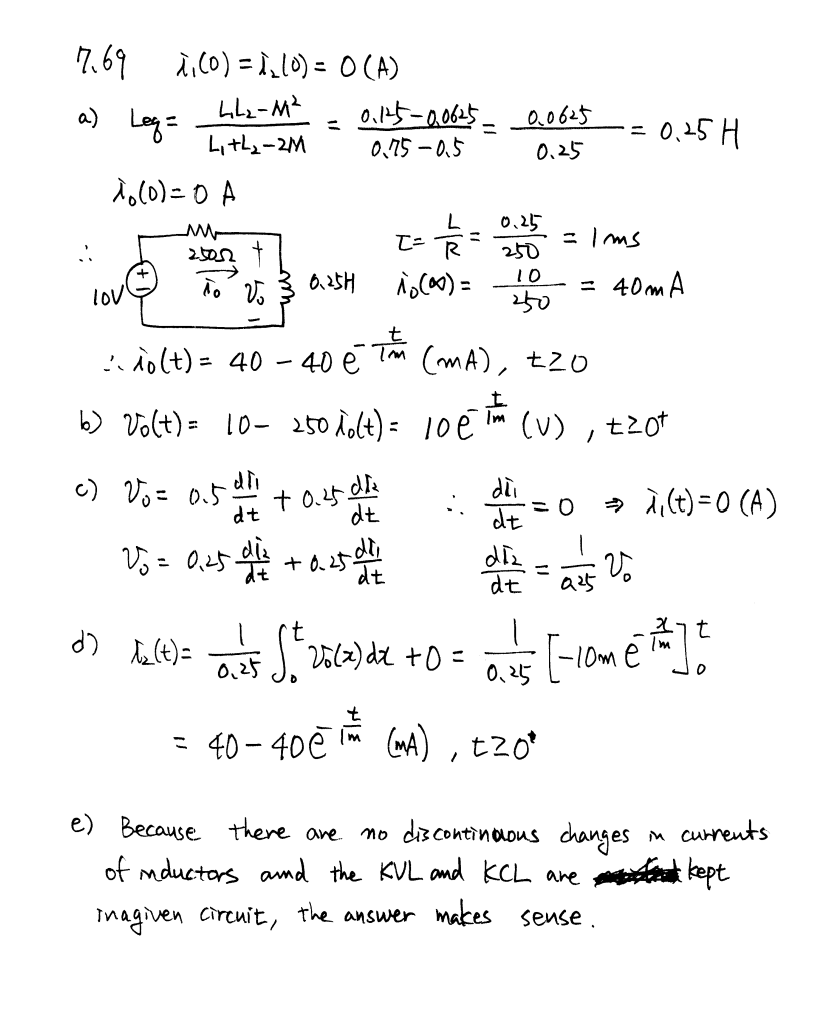 7.69 i₁(0) = i₂(0) = 0 (A)
a) Leq = (L₁L₂ - M²)/(L₁ + L₂ - 2M) = (0.125 - 0.0625)/(0.75 - 0.5) = 0.0625/0.25 = 0.25 H
i₀(0) = 0 A
∴ 10V 250Ω i₀ + v₀ - 0.25H
τ = L/R = 0.25/250 = 1ms
i₀(∞) = 10/250 = 40mA
∴ i₀(t) = 40 - 40 e^(-t/1m) (mA), t ≥ 0
b) v₀(t) = 10 - 250 i₀(t) = 10 e^(-t/1m) (V), t ≥ 0⁺
c) v₀ = 0.5 di₁/dt + 0.25 di₂/dt ∴ di₁/dt = 0 ⇒ i₁(t) = 0 (A)
v₀ = 0.25 di₂/dt + 0.25 di₁/dt di₂/dt = 1/0.25 v₀
d) i₂(t) = 1/0.25 ∫₀ᵗ v₀(x)dx + 0 = 1/0.25 [-10m e^(-x/1m)]₀ᵗ
= 40 - 40e^(-t/1m) (mA), t ≥ 0⁺
e) Because there are no discontinuous changes in currents
of inductors and the KVL and KCL are kept
in a given circuit, the answer makes sense.